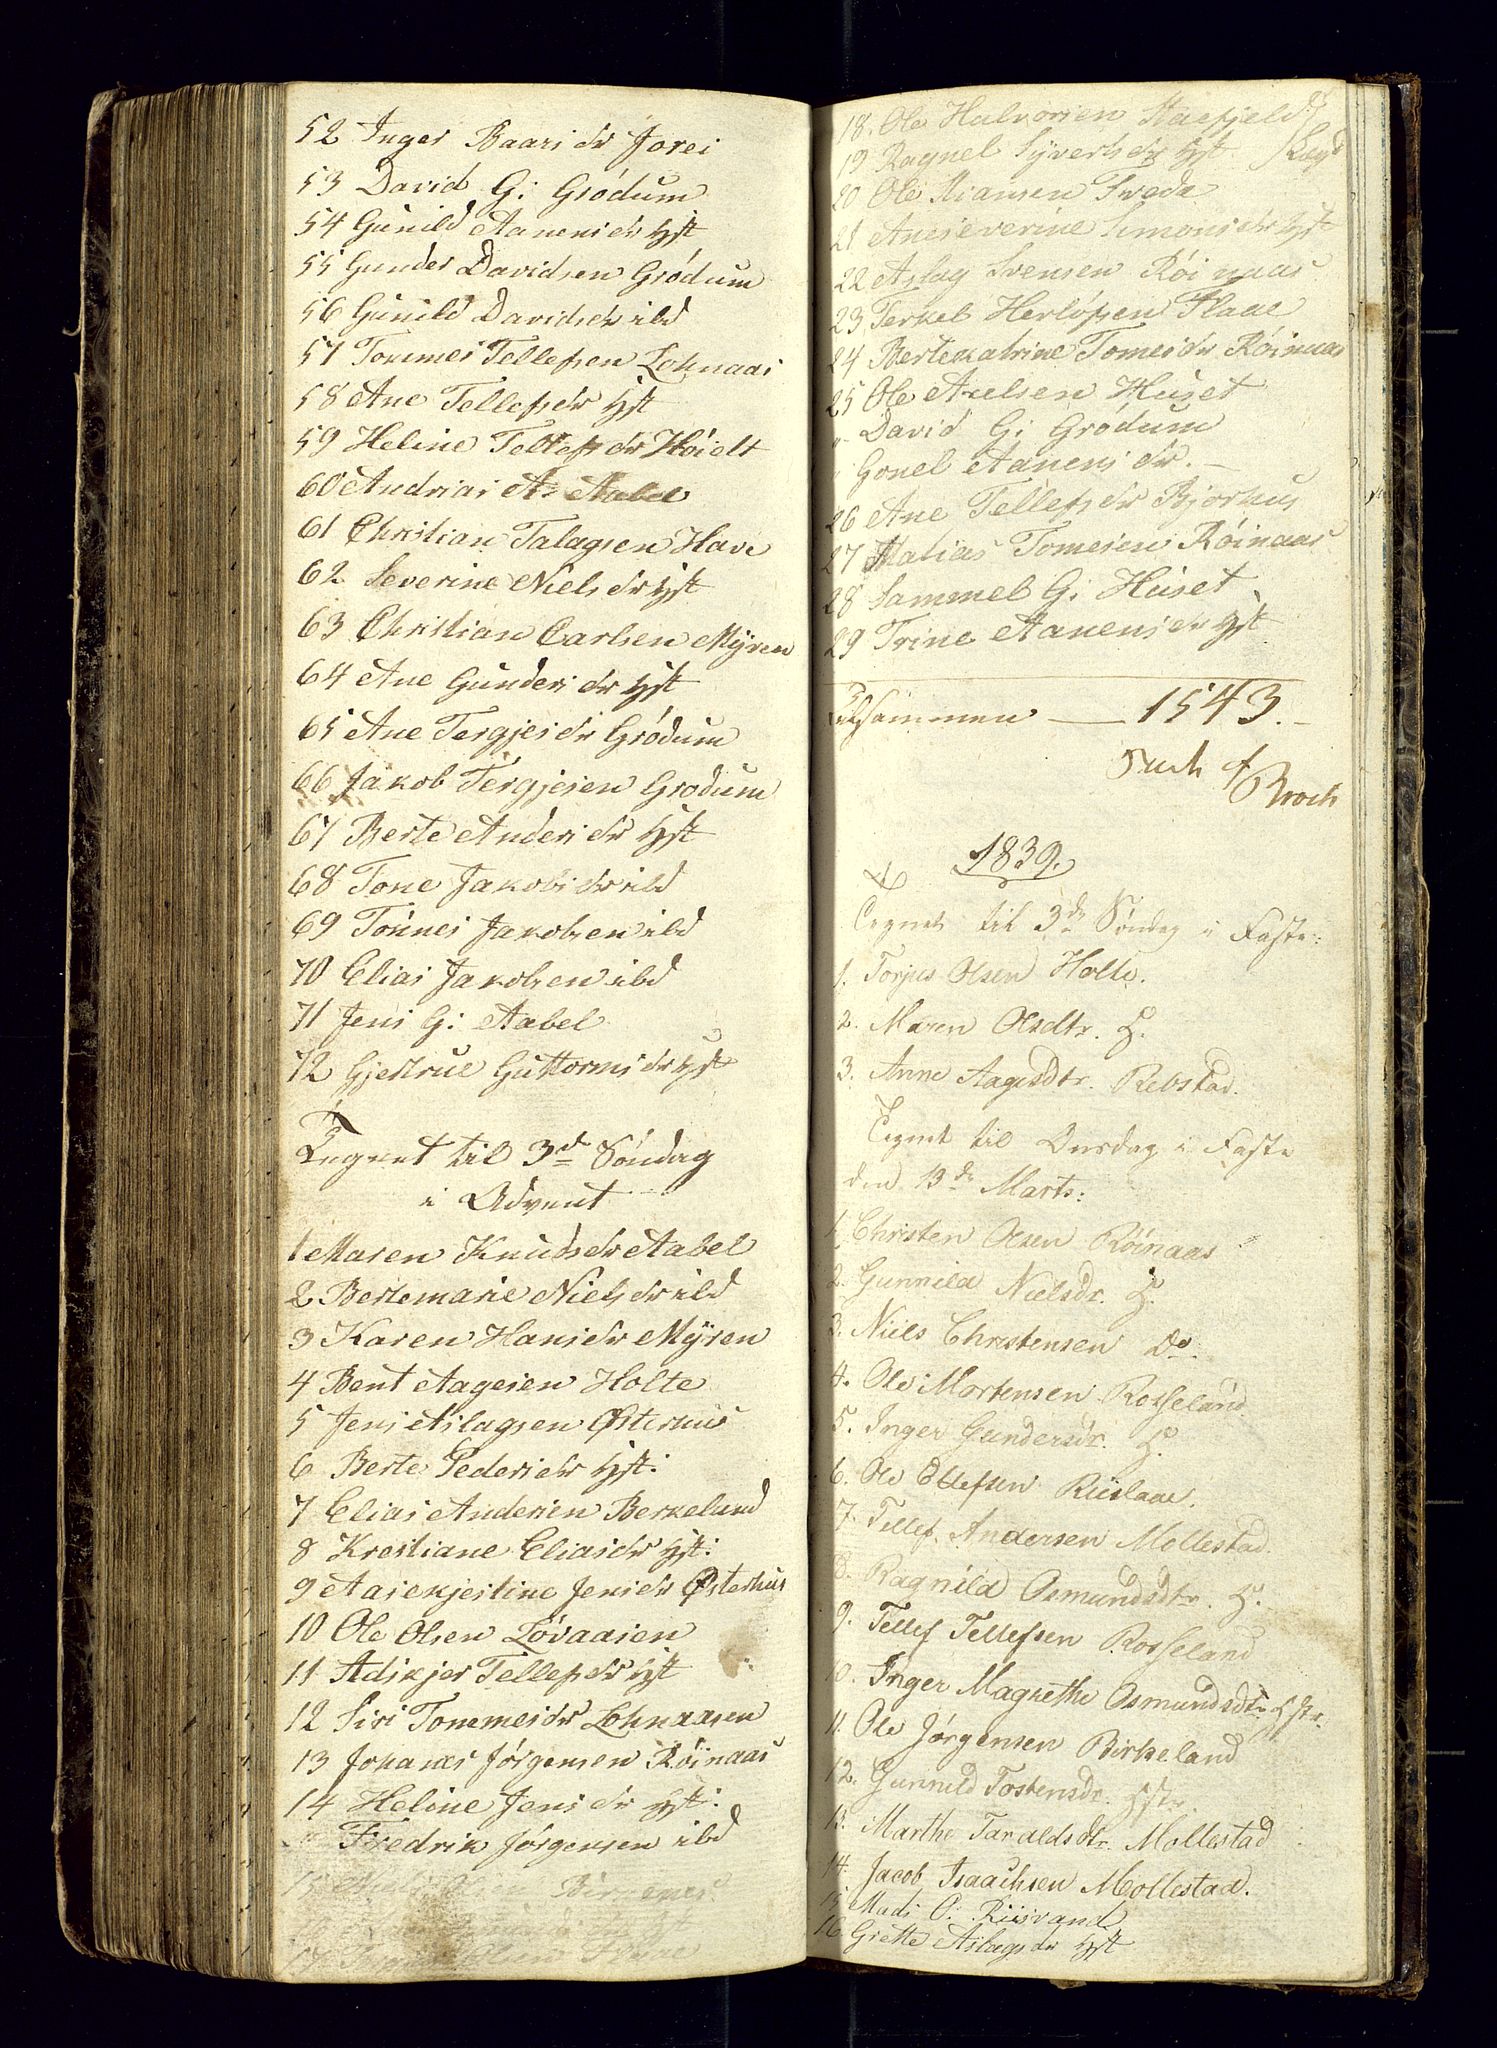 52 Inger Baarsdr Jorei
53 David G: Grödum
54 Gunild Aanensdr hst
55 Gunder Davidsen Grödum
56 Gunild Davidsdr ibd
57 Tommes Tellefsen Lohnaas
58 Ane Tellefsdr hst
59 Heline Tellefsdr Höielt
60 Andrias As Aabel
61 Christian Talagsen Have
62 Severine Nielsdr hst
63 Christian Carlsen Mÿren
64 Ane Gundersdr hst
65 Ane Tergjesdr Grödum
66 Jakob Tergjesen Grodum
67 Berte Andersdr hst
68 Tone Jakobsdr ibd
69 Tönnes Jakobsen ibd
70 Elias Jakobsen ibd
71 Jens G: Aabel
72 Gjertrue Guttormsdr hst
Tegnet til 3d Söndag
i Advent
1 Maren Knudsdr Aabel
2 Bertemarie Nielsdr ibd
3 Karen Hansdr Mÿren
4 Bent Aagesen Holte
5 Jens Aslagsen Østerhus
6 Berte Pedersdr hst:
7 Elias Andersen Berkelund
8 Krestiane Eliasdr hst:
9 Aasekjestine Jensdr Østerhus
10 Ole Olsen Lövaasen
11 Adskjer Tellefsdr hst
12 Siri Tommesdr Lohnaasen
13 Johanes Jörgensen Röinaas
14 Heline Jensdr hst:
Fredrik Jörgensen ibd
15 Niels Olsen Birkenes
17 Olsen Flaae
18. Ole Halvorsen Staefjeld
19 Ragnel Syvertsdr hst
20 Ole Niansen Sveda
21 Aneseverine Simonsdr hst
22 Aslag Svensen Röinaas
23 Terkel Herlöfsen Flaae
24 Bertekatrine Tomesdr Röinaas
25 Ole Axelsen Huset
" David G: Grödum
" Gonel Aanensdr. –
26 Ane Tellefsdr Bjorkus
27 Matias Tomesen Röinaas
28 Sammel G: Huset
29 Trine Aanensdr hst
Tilsammen — 1543. –
Broch
1839.
Tegnet til 3de Söndag i Faste:
1. Torjus Olsen Holte.
2. Maren Olsdtr. H.
3. Anne Aagesdtr. Rebstad.
Tegnet til Onsdag i Faste
den 13de Marts:
1. Christen Olsen Röinaas
2. Gunnild Nielsdr. H.
3. Niels Christensen Do.
4. Ole Mortensen Rosseland
5. Inger Gundersdr. H.
6. Ole Ellefsen Riislaae.
7. Tellef. Andersen Mollestad.
8. Ragnild Osmundsdtr. H.
9. Tellef Tellefsen Rosseland
10. Inger Magrethe Osmundsdtr. Hstr.
11. Ole Jörgensen Birkeland
12. Gunnild Tostensdr. Hstr.
13. Marthe Taraldsdtr. Mollestad
14. Jacob Isaachsen Mollestad.
15 Mads O: Riisvand
16 Grette Aslagsdr hst